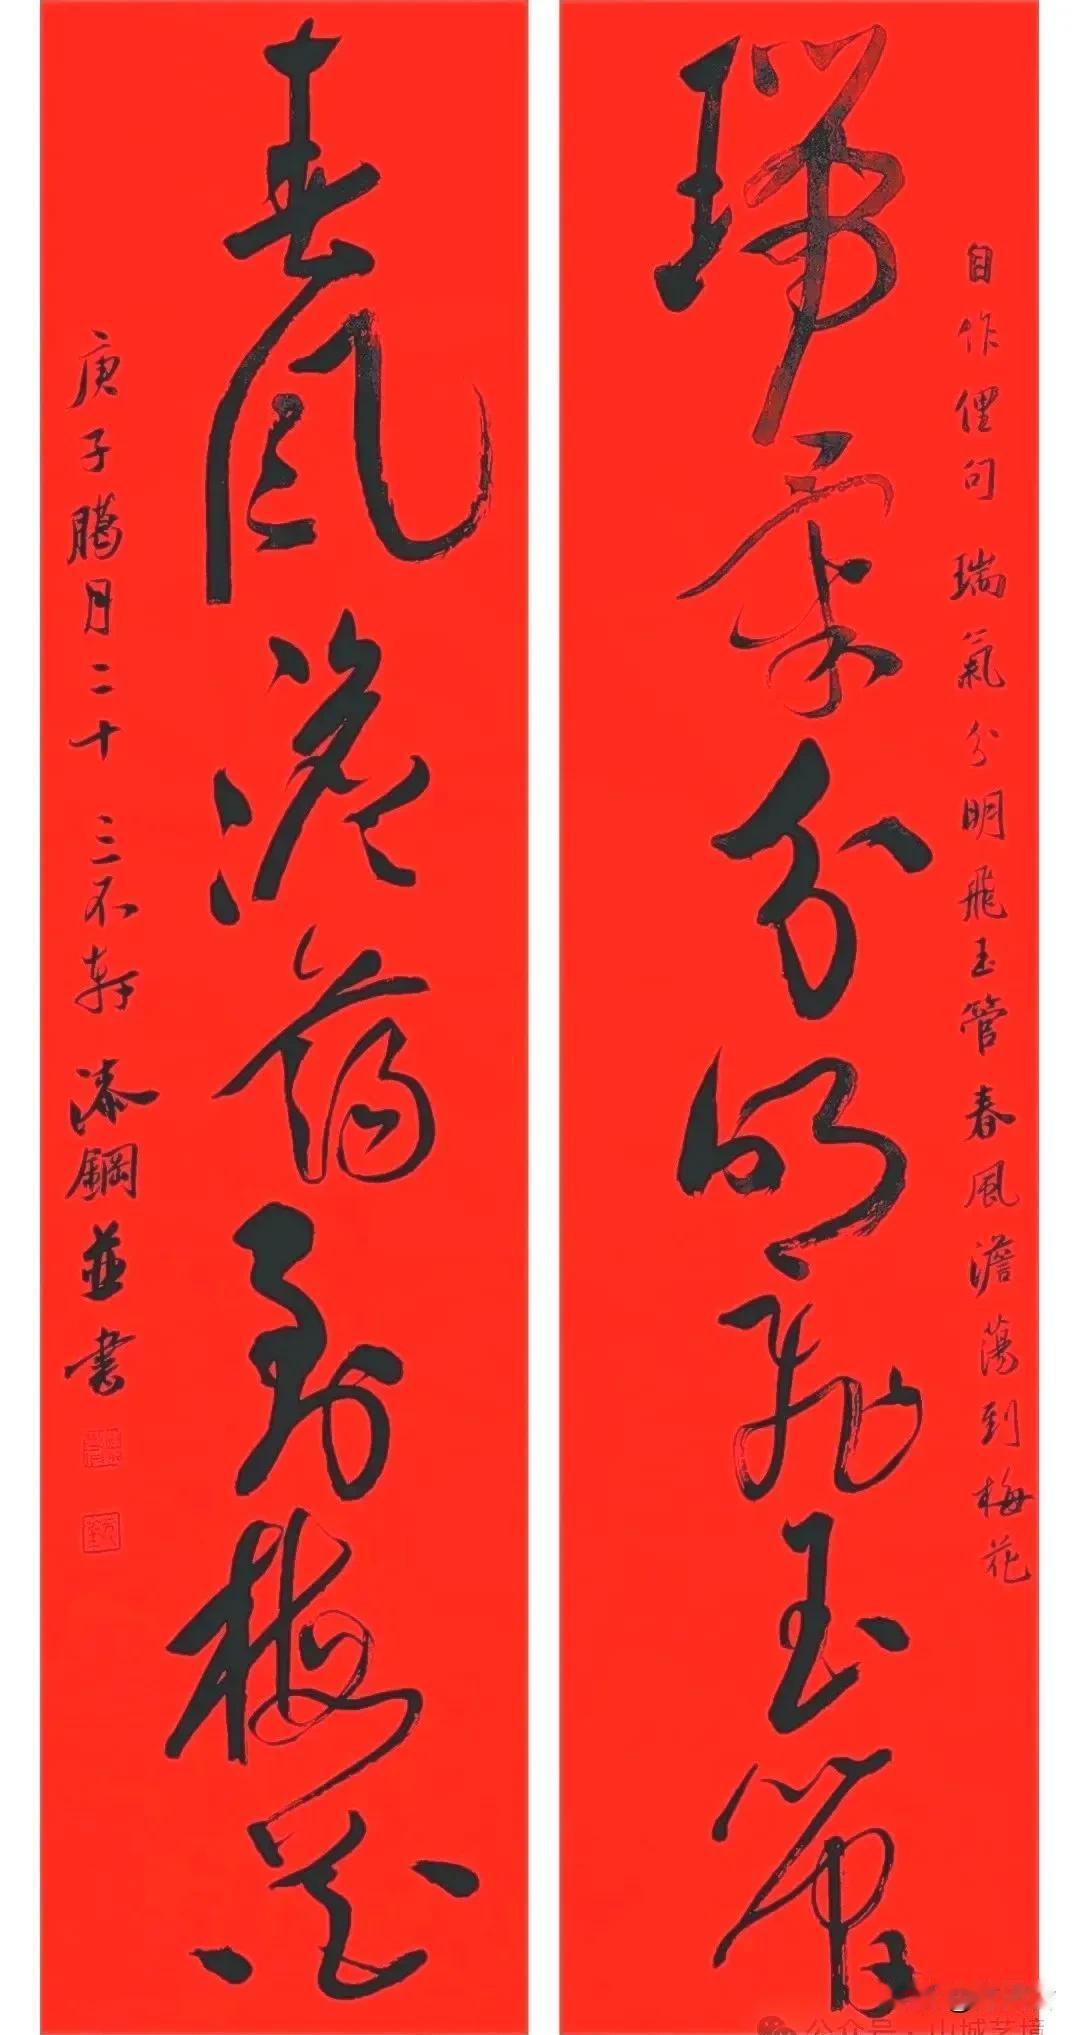 瑞氣分明飛玉管
自作俚句 瑞氣分明飛玉管春風澹蕩到梅花
春風澹蕩到梅花
庚子臘月二十 三不軒 漆鋼並書
公众号·山城艺境